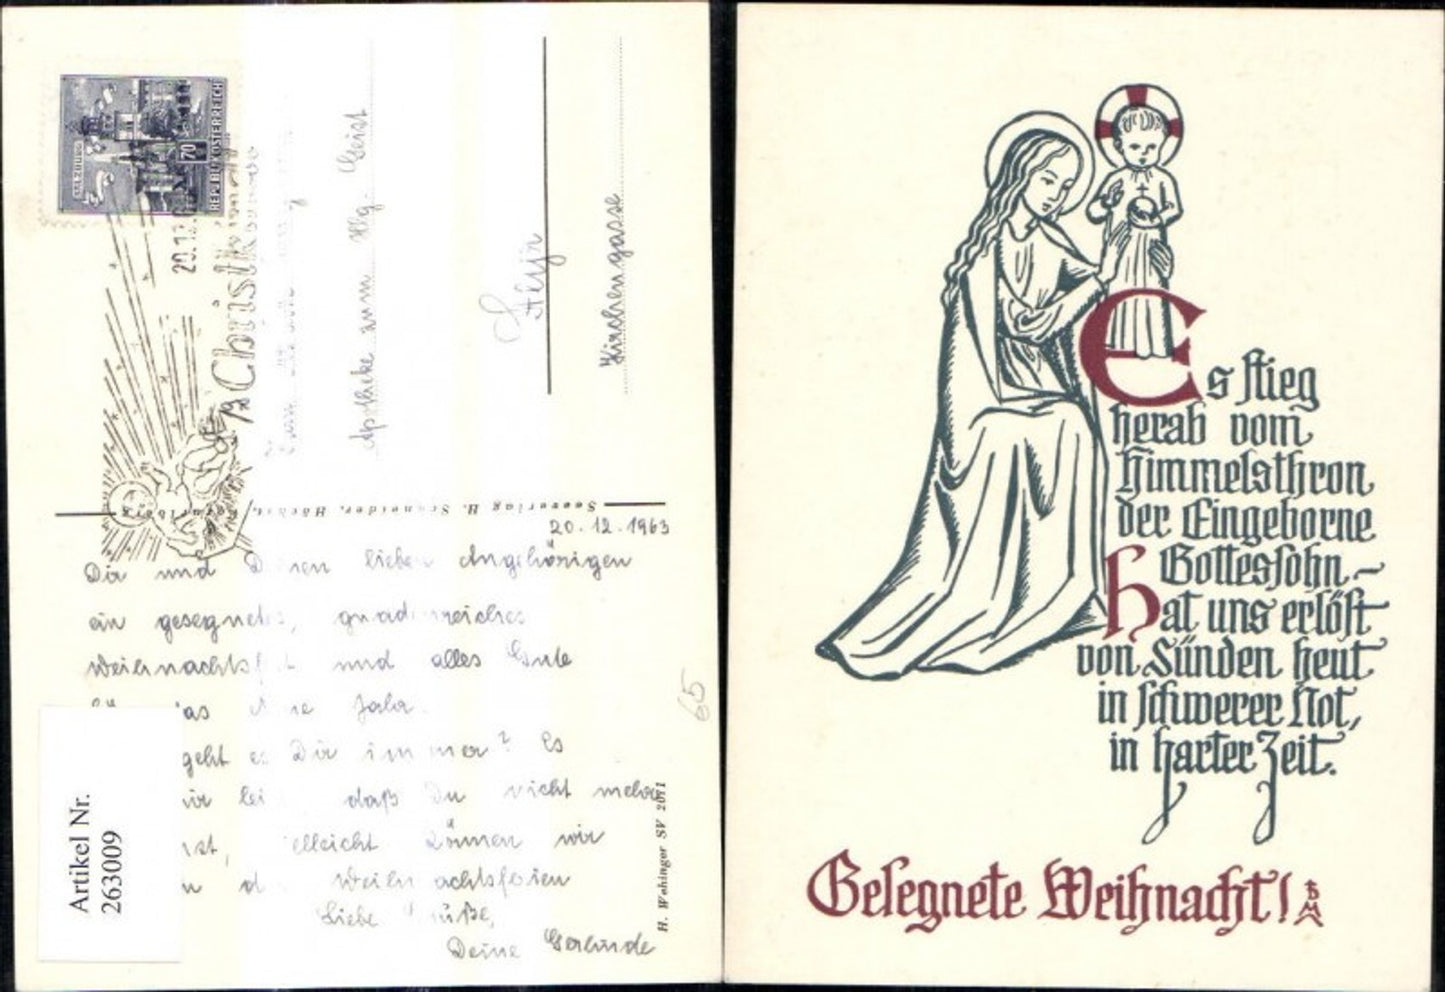 SALZBURG
70
REPUBLIK ÖSTERREICH
20.12.
Christkindl
Apotheke zum Hlg. Geist
Steyr
Kirchengasse
Seeverlag H. Schneider, Höchst,
20.12.1963
Dir und Deinen lieben Angehörigen
ein gesegnetes, gnadenreiches
Weihnachtsfest und alles Gute
das neue Jahr.
geht es Dir immer? Es
mir leid daß Du nicht mehr
ist, vielleicht können wir
in den Weihnachtsferien
Liebe Grüße,
Deine Gerlinde
65
H. Wehinger SV 2011
Artikel Nr.
263009
Es stieg
herab vom
Himmelsthron
der Eingeborne
Gottessohn -
Hat uns erlöst
von Sünden heut
in schwerer Not,
in harter Zeit.
Gesegnete Weihnacht!